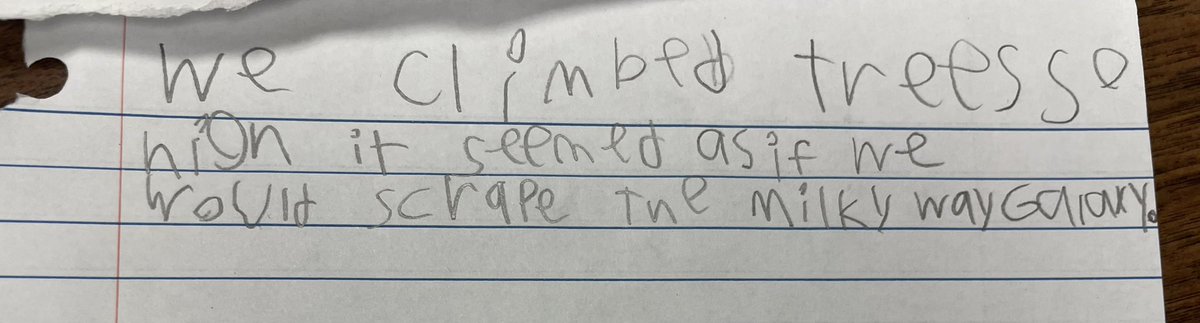 We climbed trees so
high it seemed as if we
would scrape the milky way Galaxy.